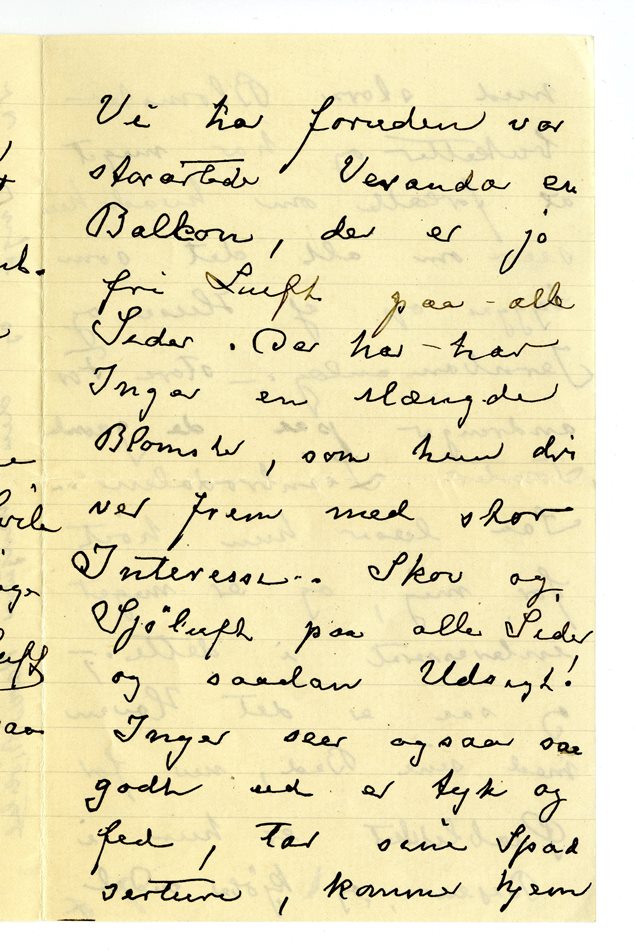 Vi har foruden vor
storartede Veranda en
Balkon, der er jo
fri Luft paa - alle
Sider. Der har - har
Inger en Mængde
Blomster, som hun dri
ver frem med stor
Interesse.. Skov og
Sjöluft paa alle Sider
og saadan Udsigt!
Inger seer ogsaa saa
godt ud er tyk og
fed, tar sine Spad
serture, kommer hjem